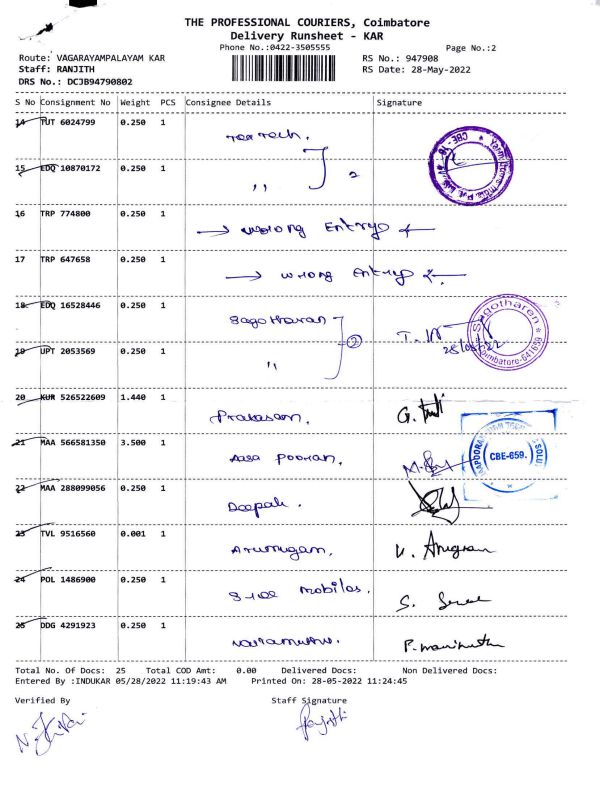 THE PROFESSIONAL COURIERS, Coimbatore
Delivery Runsheet - KAR
Phone No.:0422-3505555
Page No.:2
Route: VAGARAYAMPALAYAM KAR
RS No.: 947908
Staff: RANJITH
RS Date: 28-May-2022
DRS No.: DCJB94790802
S No Consignment No Weight PCS Consignee Details Signature
14 TUT 6024799 0.250 1
15 EDQ 10870172 0.250 1 ,, 2
16 TRP 774800 0.250 1 wrong Entry
17 TRP 647658 0.250 1 wrong Entry
18 EDQ 16528446 0.250 1 Sagotharan 2
Sagotharen
28/05/22
Coimbatore-641659
19 UPT 2053569 0.250 1 ,,
20 KUR 526522609 1.440 1 Prakasam.
21 MAA 566581350 3.500 1 Aasa pooran.
CBE-659.
22 MAA 288099056 0.250 1 Deepak.
23 TVL 9516560 0.001 1 Arumugam.
24 POL 1486900 0.250 1 mobiles.
25 DDG 4291923 0.250 1
Total No. Of Docs: 25 Total COD Amt: 0.00 Delivered Docs: Non Delivered Docs:
Entered By :INDUKAR 05/28/2022 11:19:43 AM Printed On: 28-05-2022 11:24:45
Verified By Staff Signature